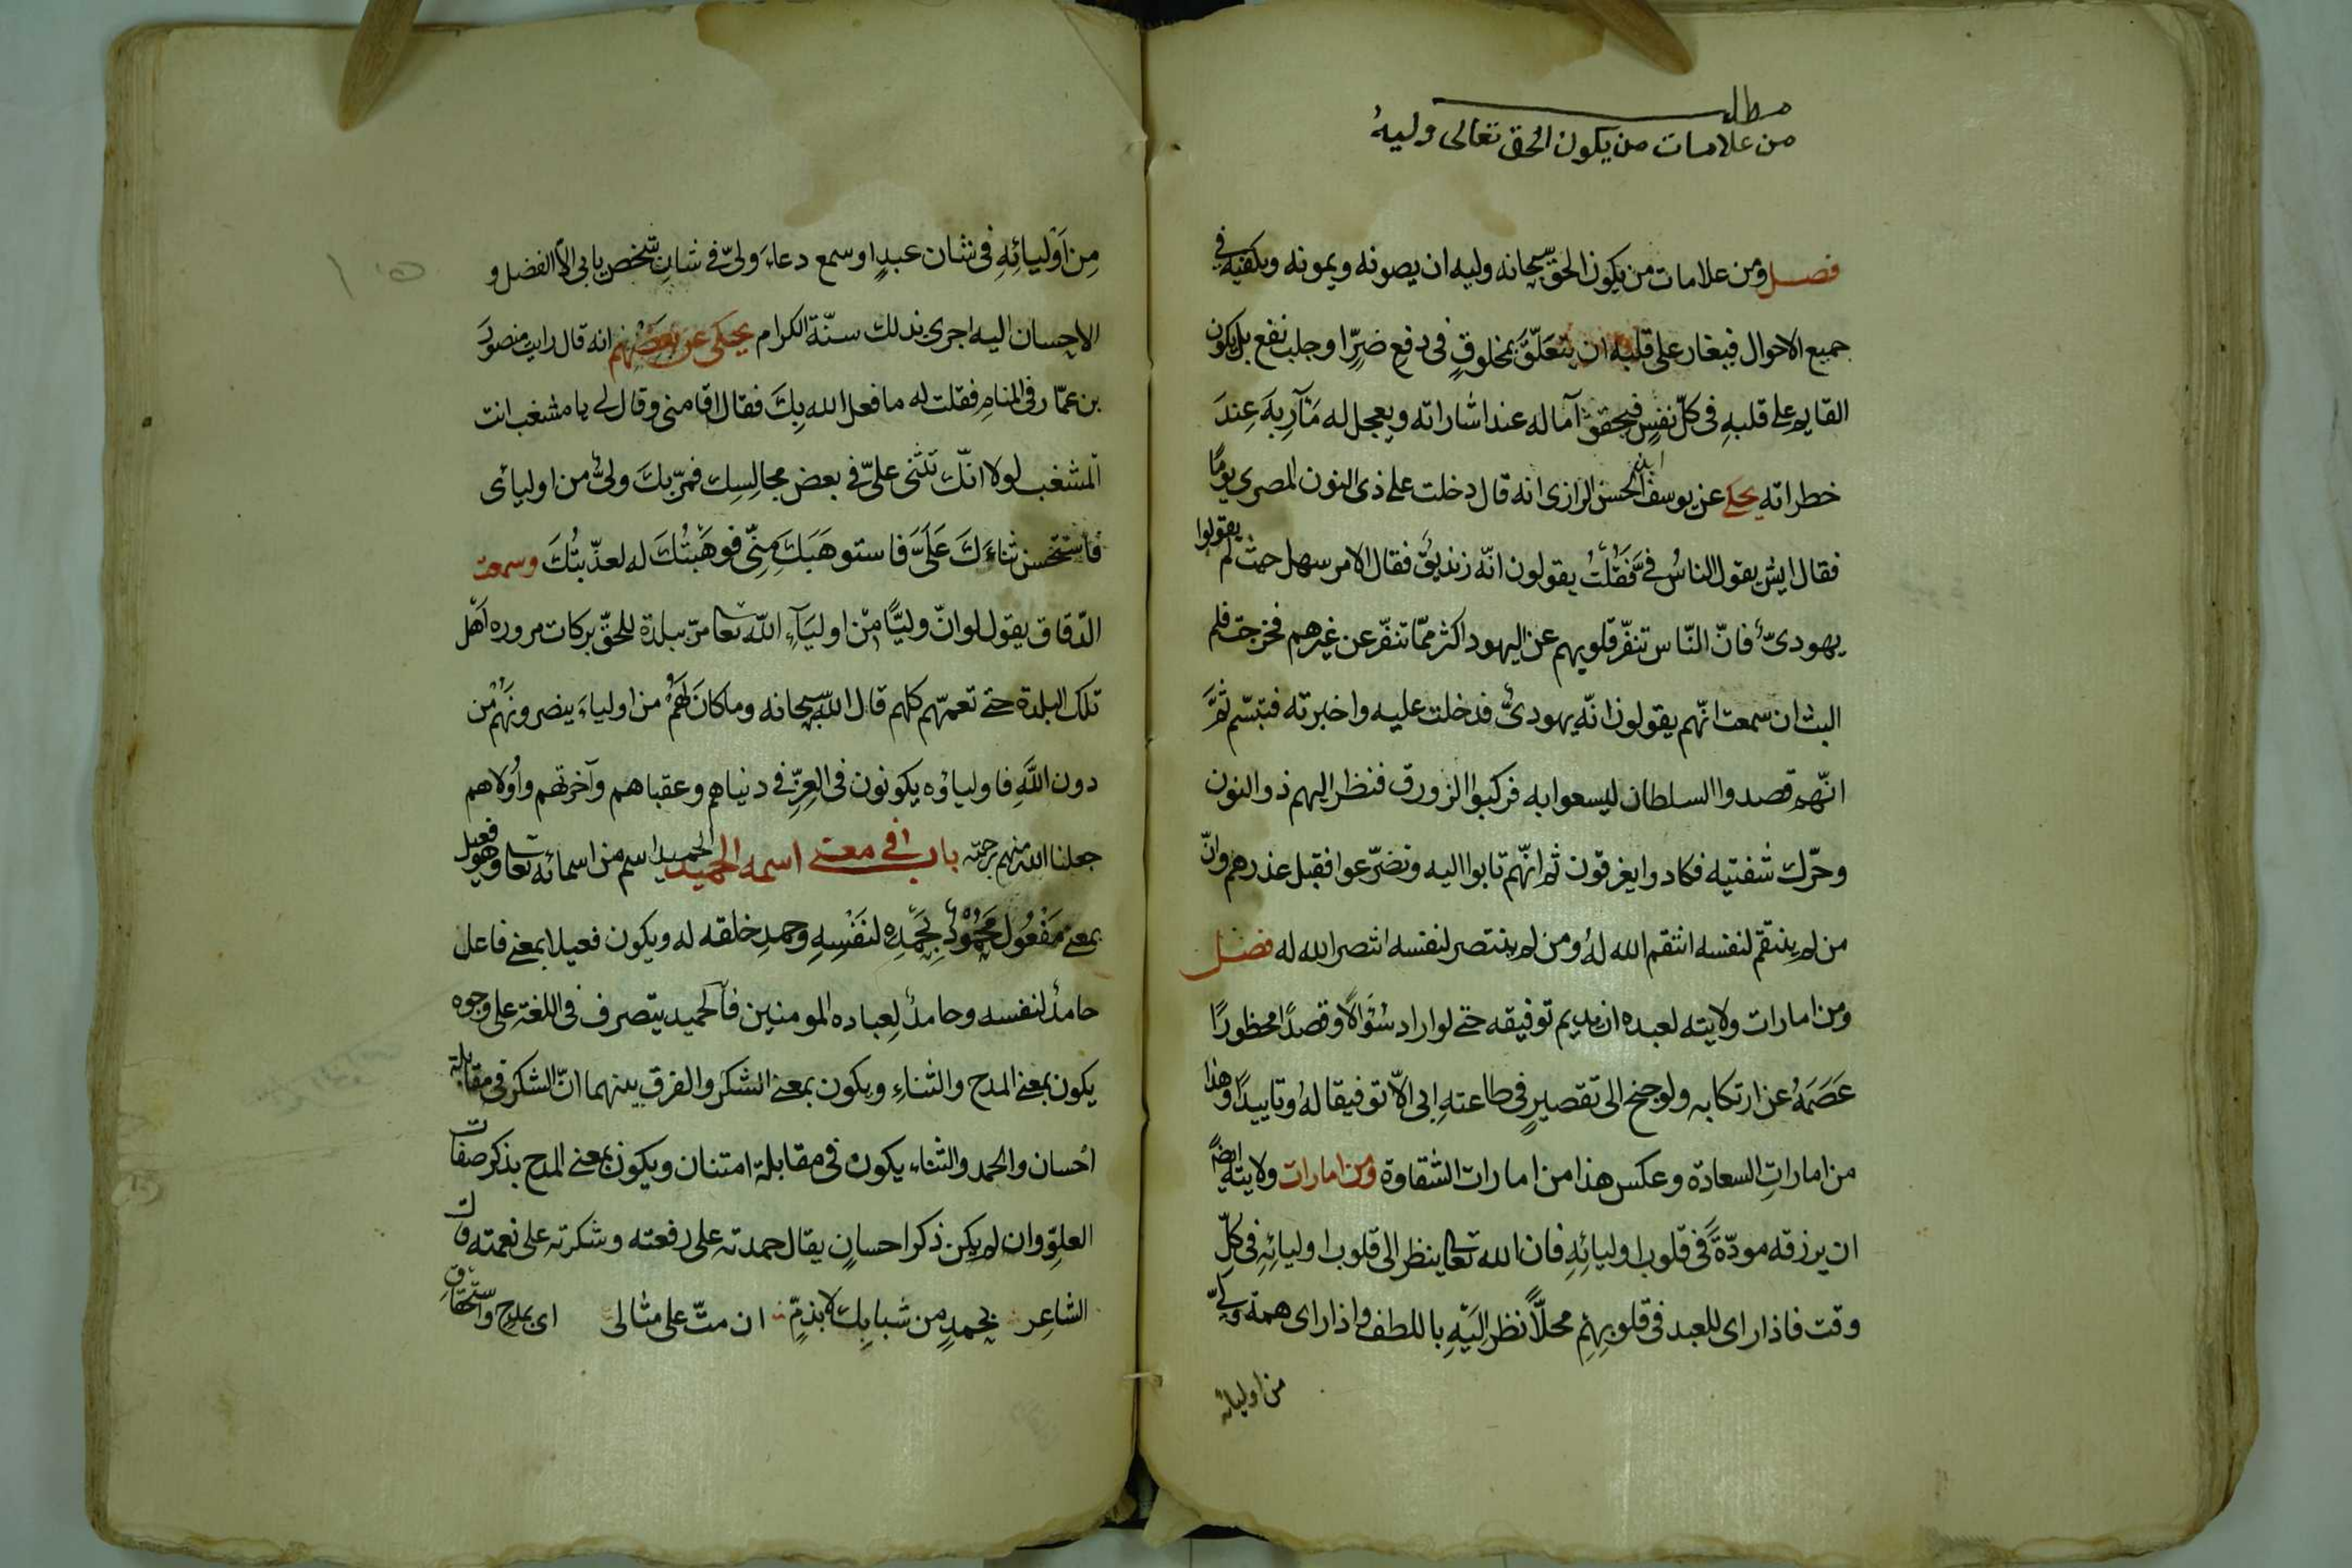 مطلب
من علامات من يكون الحق تعالى وليه
فصل ومن علامات من يكون الحق سبحانه وليه ان يصونه ويمونه ويكفيه في
جميع الاحوال فيغار على قلبه ان يتعلّق بمخلوقٍ فى دفع ضرٍّ او جلب نفع بل يكون
القايم على قلبهِ فى كلّ نفسٍ فيحقق آماله عند اشاراته ويعجل له مآربه عند
خطراته يحكى عن يوسف ابن الحسن الرازى انه قال دخلت على ذى النون المصرى يومًا
فقال ايش يقول الناسُ فيَّ فَقُلْتُ يقولون انّه زنديقٌ فقال الامر سهل حيث لم يقولوا
يهودىٌّ فانّ النّاس تنفّر قلوبهم عن اليهود اكثر ممّا تنفّر عن غيرهم فخرجت فلم
البث ان سمعت انّهم يقولون انّه يهودىٌّ فدخلت عليه واخبرته فتبسّم ثمَّ
انّهم قصدوا السلطان ليسعوا به فركبوا الزورق فنظر اليهم ذو النون
وحرّك شفتيه فكادوا يغرقون ثم انّهم تابوا اليه وتضرّعوا فقبل عذرهم وانّ
من لم ينتقم لنفسه انتقم الله لهُ ومن لم ينتصر لنفسه انتصر الله له فصل
ومن امارات ولايته لعبده ان يديم توفيقه حتى لو اراد سُؤالًا وقصدًا محظورًا
عَصَمَهُ عن ارتكابه ولو جنح الى تقصيرٍ فى طاعتهِ ابى الّا توفيقا لهُ وتاييدًا وهذا
من اماراتِ السعادة وعكس هذا من امارات الشقاوة ومن امارات ولايته ايضًا
ان يرزقه مودّةً فى قلوب اوليائهِ فان الله تعا ينظر الى قلوب اوليائِهِ فى كلِّ
وقت فاذا راى للعبد فى قلوبهِم محلّاً نظر اليَهِ باللطف واذا راى همة وليّ
من اوليائه
مِن اَوْليائِهِ فى شان عبدٍ او سمع دعاءَ ولىّ فى شان شخص يابى الّا الفضل و
الاحسان اليه اجرى بذلك سنّة الكرام يحكى عن بعضهم انه قال رايت منصورَ
بن عمّار فى المنامِ فقلت له ما فعل الله بِكَ فقال اقامنى وقال لى يا مشغب انت
المشغب لولا انّك تثنى علىّ فى بعض مجالِسِك فمرّ بكَ ولىٌّ من اوليائى
فاستحسن ثناءَكَ عَلَىَّ فاستوهَبَكَ مِنِّى فوهَبْتُكَ له لعذّبتُكَ وسمعت
الدّقاق يقول لو انّ وليًّا مِنْ اوليَآءِ اللّه تعا مرّ ببلدة للحقّ بركات مروره اَهْل
تلك البلدة حتى تعمّهم كلهم قال الله سبحانه وما كانَ لَهُمْ من اولياءَ ينصرونَهُم من
دون اللَّهِ فاولياؤه يكونون فى العزّ فى دنياهم وعقباهم وآخرتهم واُولاهم
جعلنا الله منهم برحمته باب فى معنى اسمه الحميد الحميد اسم من اسمائه تعا وهو فعيل
بمعنى مَفْعُول مَحْمُودٌ بِحَمْدِه لنَفْسِهِ وحمدِ خلقه له ويكون فعيلا بمعنى فاعل
حامدٌ لنفسه وحامدٌ لِعباده المومنين فالحميد يتصرف فى اللغة على وجوه
يكون بمعنى المدح والثناءِ ويكون بمعنى الشكر والفرق بينهما انّ الشكر فى مقابلة
احسان والحمد والثناء يكون فى مقابلة امتنان ويكون بمعنى المدح بذكر صفات
العلوِّ وان لم يكن ذكر احسانٍ يقال حمدته على رفعته وشكرته على نعمته وقال
الشاعِر بحمدٍ من شبابِك لا بذمٍّ ان متّ على مثالى اى بمدحٍ واستحقاقٍ